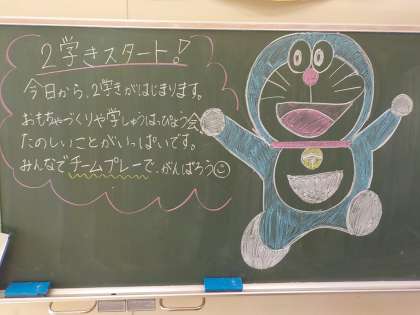 2学きスタート!
今日から、2学きがはじまります。
おもちゃづくりや学しゅうはっぴょう会、
たのしいことがいっぱいです。
みんなでチームプレーで、がんばろう